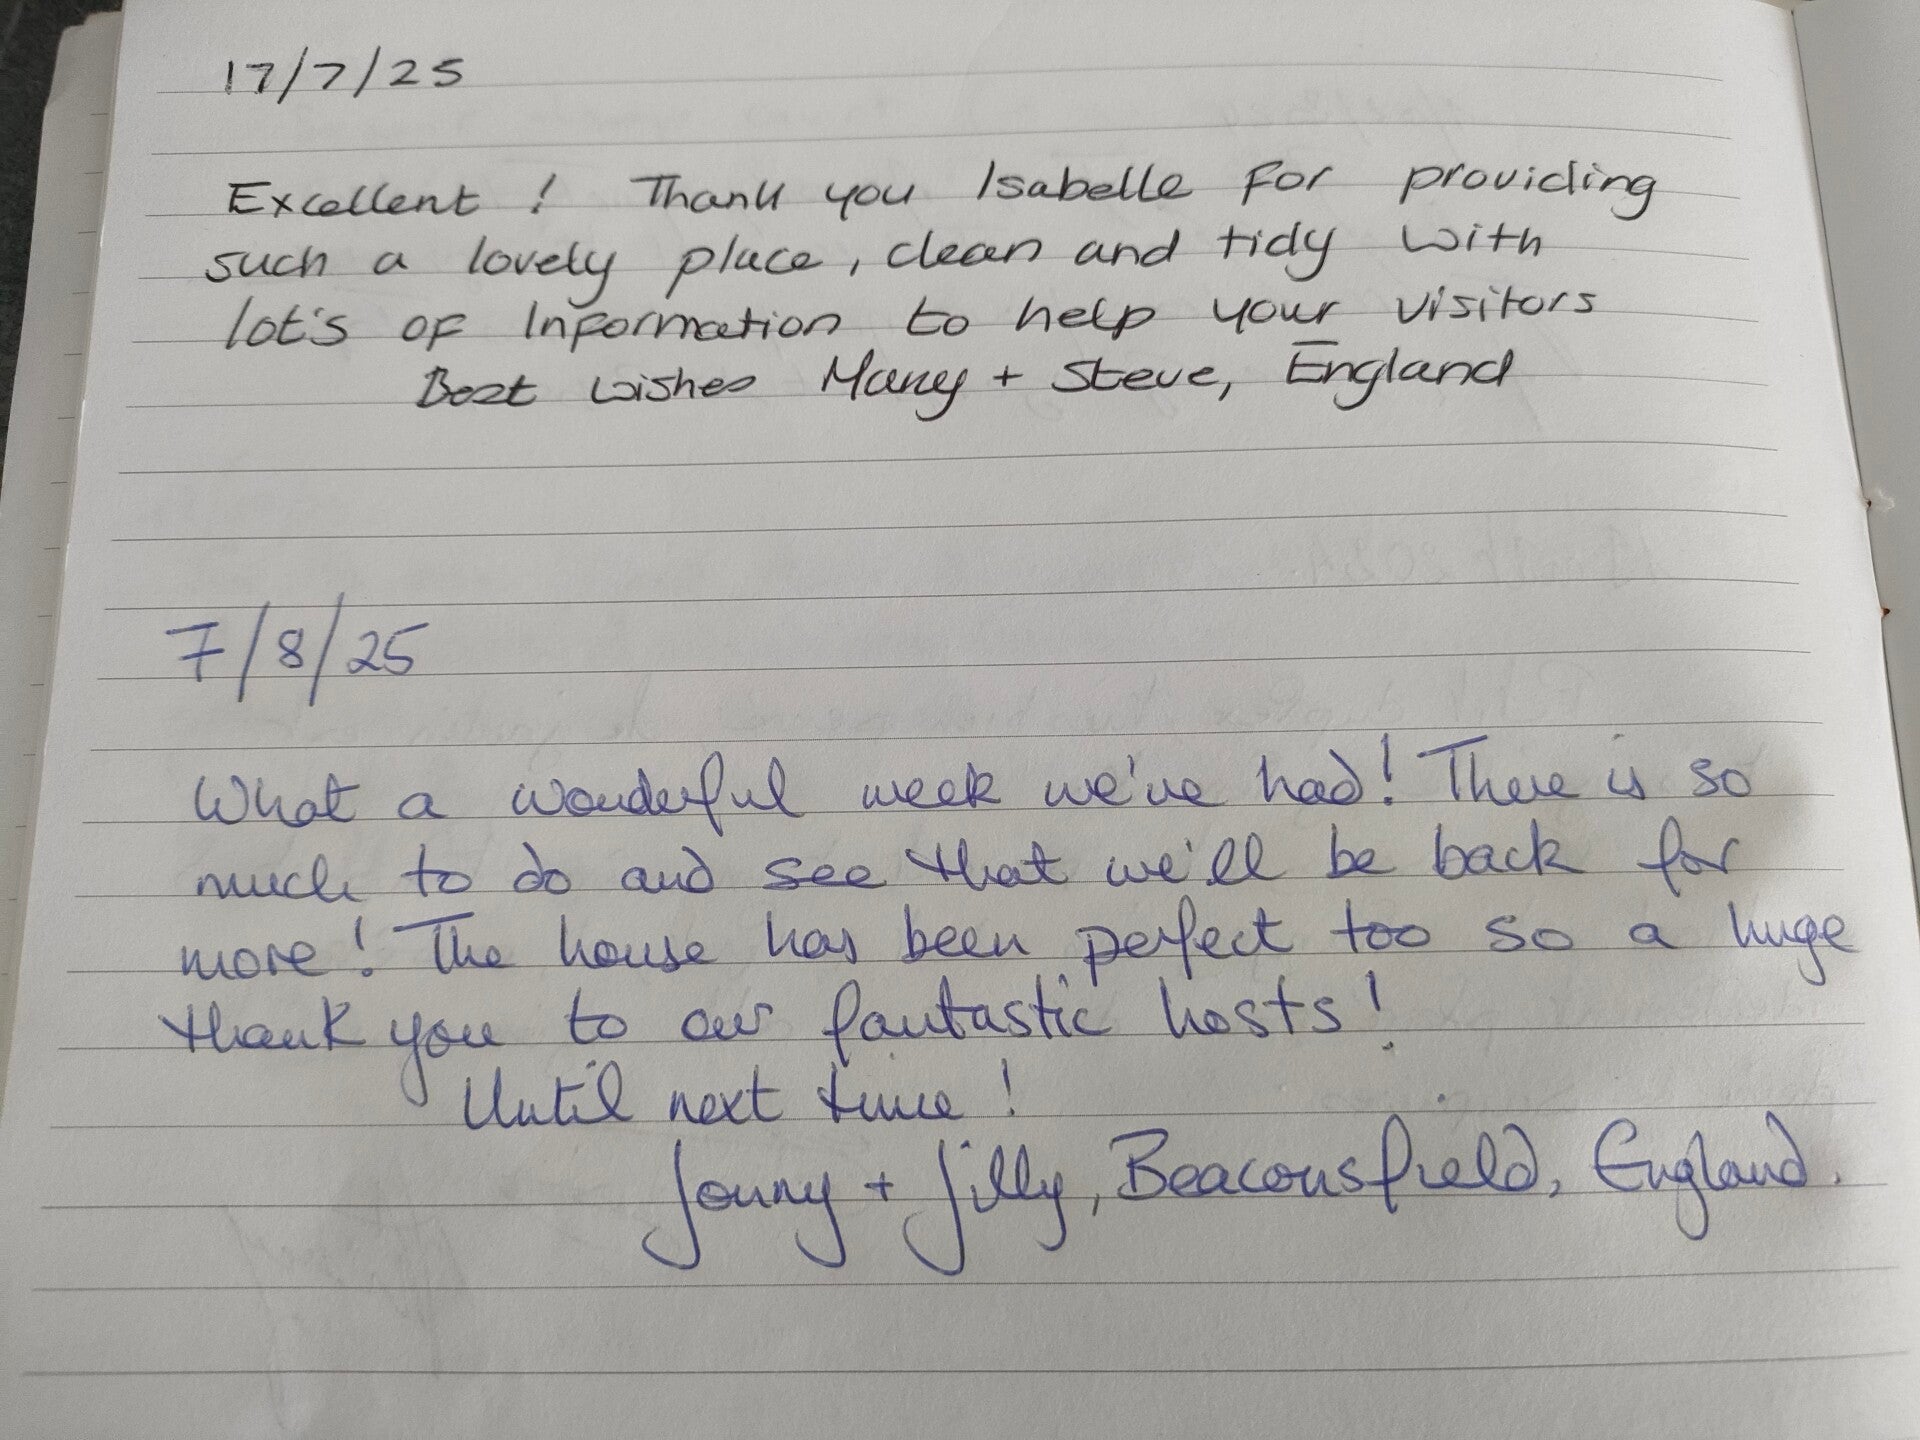 17/7/25
Excellent ! Thank you Isabelle for providing
such a lovely place, clean and tidy with
lot's of Information to help your visitors
Best wishes Mary + Steve, England
7/8/25
What a wonderful week we've had! There is so
much to do and see that we'll be back for
more! The house has been perfect too so a huge
thank you to our fantastic hosts!
Until next time!
Jonny + Jilly, Beaconsfield, England.